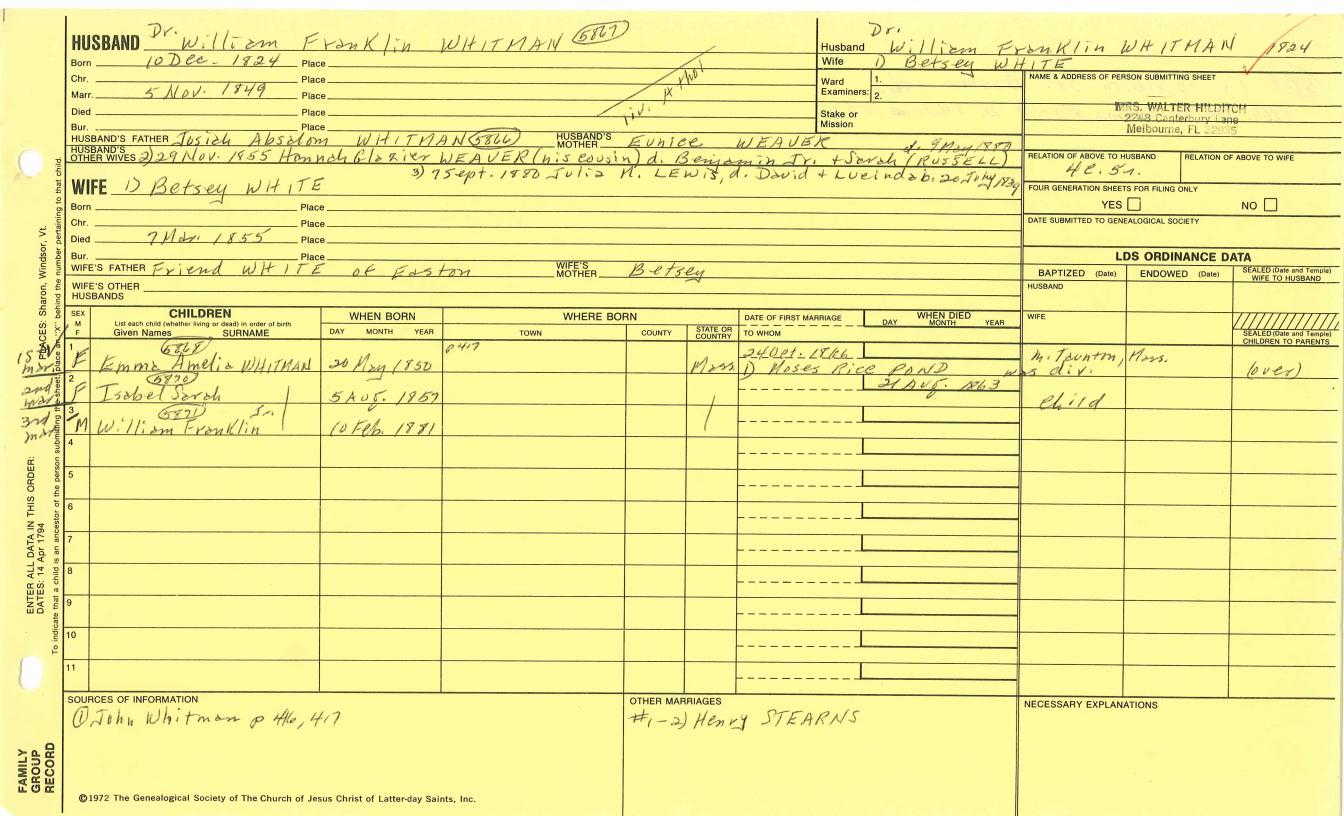 HUSBAND Dr. William Franklin WHITMAN 5867
Born 10 Dec. 1824 Place
Chr. Place
Marr. 5 Nov. 1849 Place
Died Place
Bur. Place
liv. Athol
HUSBAND'S FATHER Josiah Absalom WHITMAN 5866 HUSBAND'S MOTHER Eunice WEAVER
HUSBAND'S OTHER WIVES 2) 29 Nov. 1855 Hannah Glazier WEAVER (his cousin) d. Benjamin Jr. + Sarah (RUSSELL)
3) 7 Sept. 1880 Julia M. LEWIS, d. David + Lucinda b. 20 July 1839
WIFE 1) Betsey WHITE
Born Place
Chr. Place
Died 7 Mar. 1855 Place
Bur. Place
WIFE'S FATHER Friend WHITE of Easton WIFE'S MOTHER Betsey
WIFE'S OTHER HUSBANDS
Dr.
Husband William Franklin WHITMAN 1824
Wife 1) Betsey WHITE
Ward Examiners: 1.
2.
Stake or Mission
NAME & ADDRESS OF PERSON SUBMITTING SHEET
MRS. WALTER HILDITCH
2248 Canterbury Lane
Melbourne, FL
RELATION OF ABOVE TO HUSBAND RELATION OF ABOVE TO WIFE
4c. 5r.
FOUR GENERATION SHEETS FOR FILING ONLY
YES NO
DATE SUBMITTED TO GENEALOGICAL SOCIETY
LDS ORDINANCE DATA
BAPTIZED (Date) ENDOWED (Date) SEALED (Date and Temple) WIFE TO HUSBAND
HUSBAND
WIFE
SEALED (Date and Temple) CHILDREN TO PARENTS
SEX M F
CHILDREN
List each child (whether living or dead) in order of birth
Given Names SURNAME
WHEN BORN
DAY MONTH YEAR
WHERE BORN
TOWN COUNTY STATE OR COUNTRY
DATE OF FIRST MARRIAGE
TO WHOM
WHEN DIED
DAY MONTH YEAR
1 5868 p 417 24 Oct. 1866 m. Taunton, Mass.
1st mar. F Emma Amelia WHITMAN 20 May 1850 Mass 1) Moses Rice RAND was div. (over)
2 5870 21 Aug. 1863
2nd mar F Isabel Sarah 5 Aug. 1857 child
3 5871 Jr.
3rd mar M William Franklin 10 Feb. 1881
4
5
6
7
8
9
10
11
SOURCES OF INFORMATION
① John Whitman p 416, 417
OTHER MARRIAGES
#1-2) Henry STEARNS
NECESSARY EXPLANATIONS
©1972 The Genealogical Society of The Church of Jesus Christ of Latter-day Saints, Inc.
FAMILY GROUP RECORD
ENTER ALL DATA IN THIS ORDER:
DATES: 14 Apr 1794
PLACES: Sharon, Windsor, Vt.
To indicate that a child is an ancestor of the person submitting the sheet, place an "X" behind the number pertaining to that child.